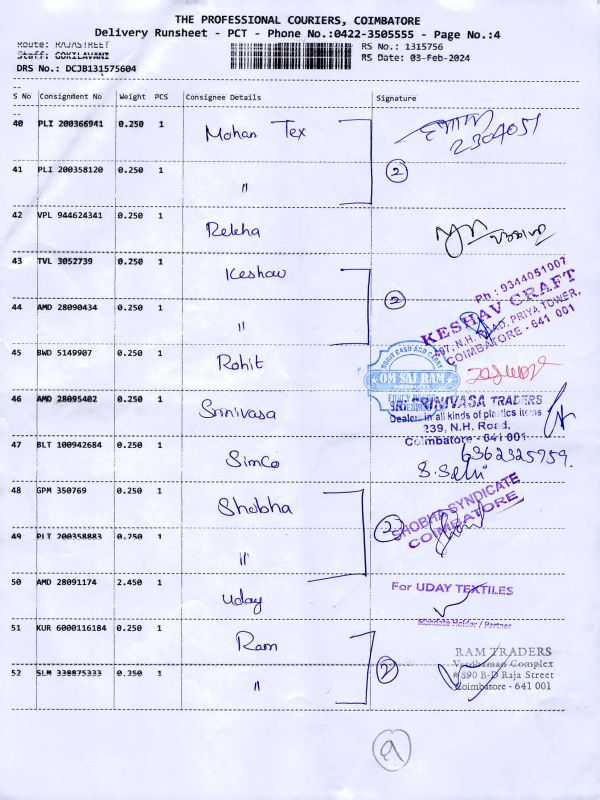 THE PROFESSIONAL COURIERS, COIMBATORE
Delivery Runsheet - PCT - Phone No.:0422-3505555 - Page No.:4
Route: RAJASTREET
RS No.: 1315756
Staff: GOKILAVANI
RS Date: 03-Feb-2024
DRS No.: DCJB131575604
S No Consignment No Weight PCS Consignee Details Signature
40 PLI 200366941 0.250 1 Mohan Tex
2304051
41 PLI 200358120 0.250 1 " 2
42 VPL 944624341 0.250 1 Rekha
43 TVL 3052739 0.250 1 Keshav
Ph : 9344051007
KESHAV CRAFT
N.H. ROAD, PRIYA TOWER,
COIMBATORE - 641 001
44 AMD 28090434 0.250 1 " 2
45 BWD 5149907 0.250 1 Rohit
OM SAI RAM
PRODUCTS
46 AMD 28095402 0.250 1 Srinivasa
SRI SRINIVASA TRADERS
Dealer in all kinds of plastics items
239, N.H. Road,
Coimbatore - 641 001
47 BLT 100942684 0.250 1 Simco
6362325959.
48 GPM 350769 0.250 1 Shobha 2
SHOBHA SYNDICATE
COIMBATORE
49 PLI 200358883 0.250 1 "
50 AMD 28091174 2.450 1 Uday
For UDAY TEXTILES
Mandate Holder / Partner
51 KUR 6000116184 0.250 1 Ram
RAM TRADERS
Vardhaman Complex
# 390 B-D Raja Street
Coimbatore - 641 001
52 SLM 338875333 0.250 1 " 2
9